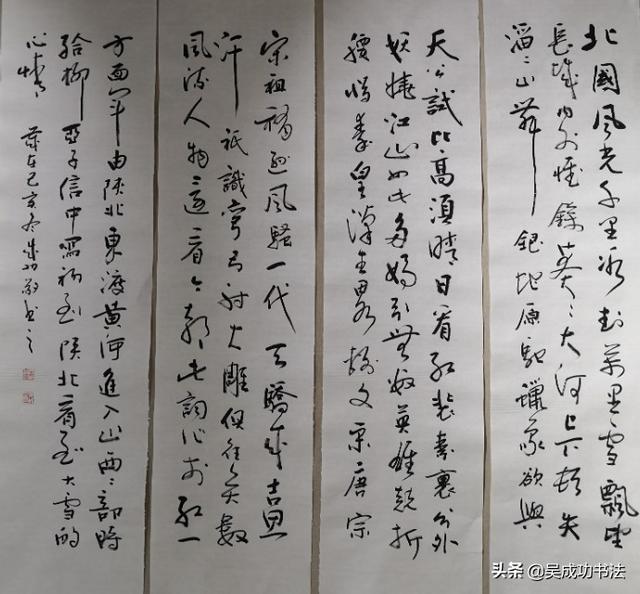 北國風光千里冰封萬里雪飄望
長城內外惟餘莽〻大河上下頓失
滔〻山舞銀蛇原馳蠟象欲與
天公試比高須晴日看紅裝素裹分外
妖嬈江山如此多嬌引無數英雄競折
腰惜秦皇漢武畧輸文采唐宗
宋祖稍遜風騷一代天驕成吉思
汗祇識彎弓射大雕俱往矣數
風流人物還看今朝此詞作於紅一
方面軍由陝北東渡黃河進入山西〻部時
給柳亞子信中寫初到陝北看到大雪的
心情 歲在己亥冬成功敬書之
头条 @吴成功书法